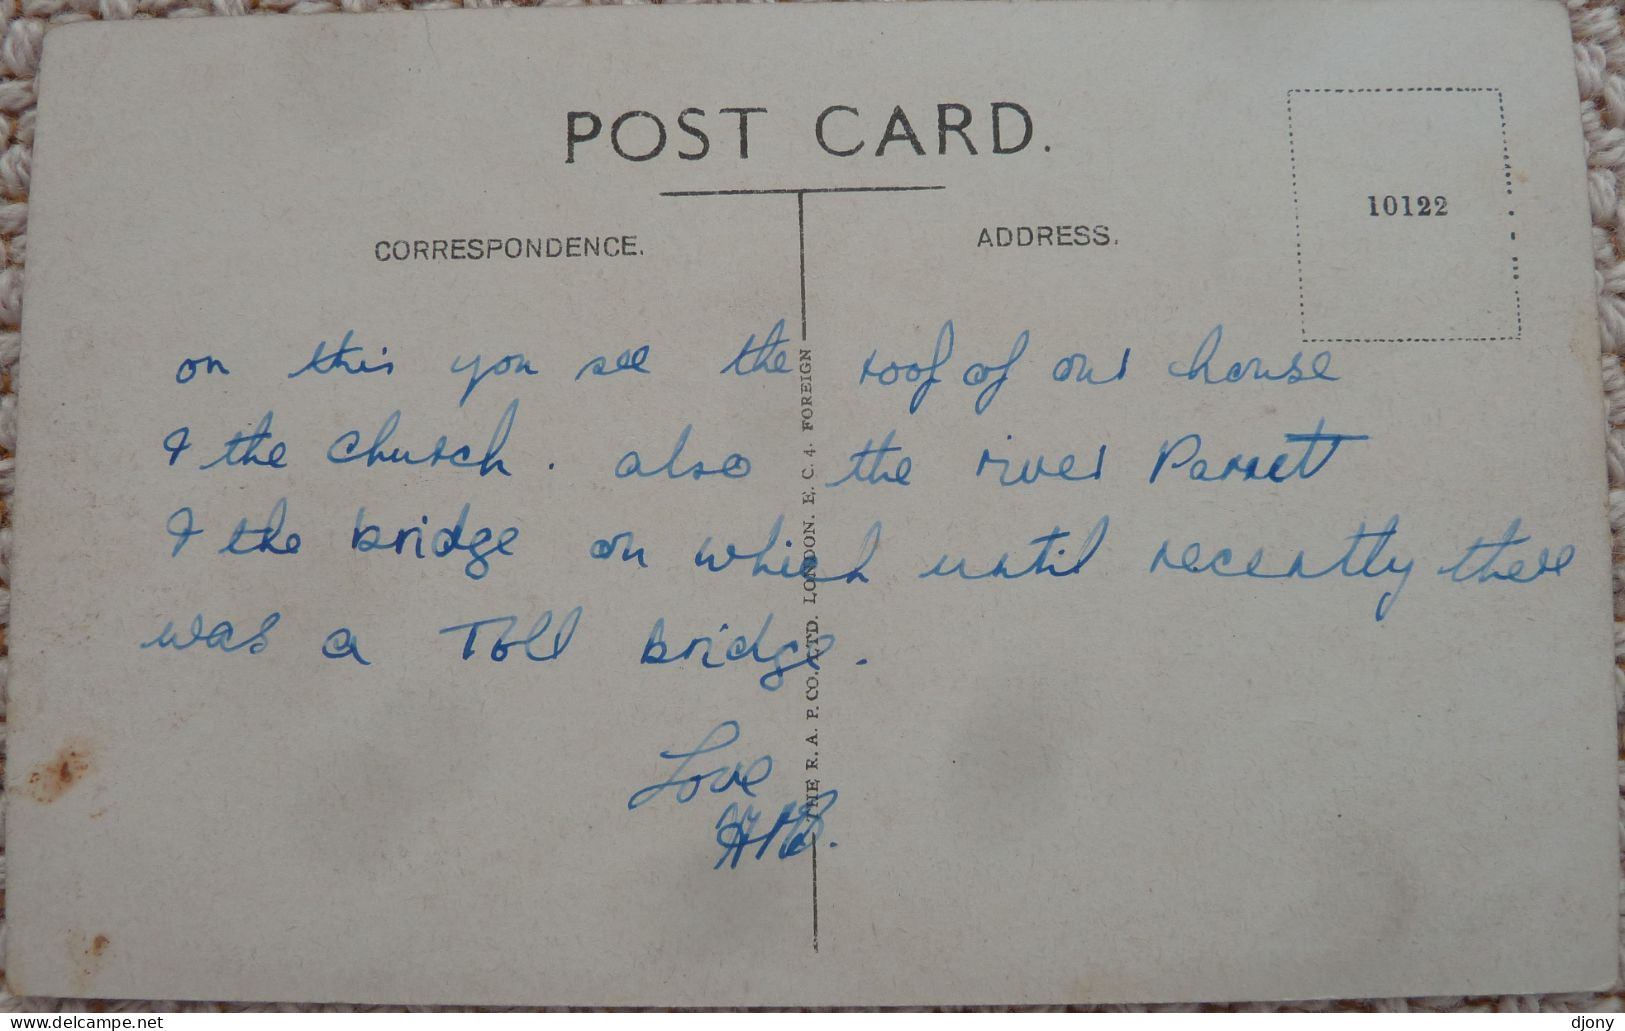 POST CARD.
CORRESPONDENCE.
ADDRESS.
10122
on this you see the roof of our house
& the church. also the river Parret
& the bridge on which until recently there
was a Toll bridge.
Love
THE R. A. P. CO. LTD. LONDON. E. C. 4. FOREIGN
www.delcampe.net
djony